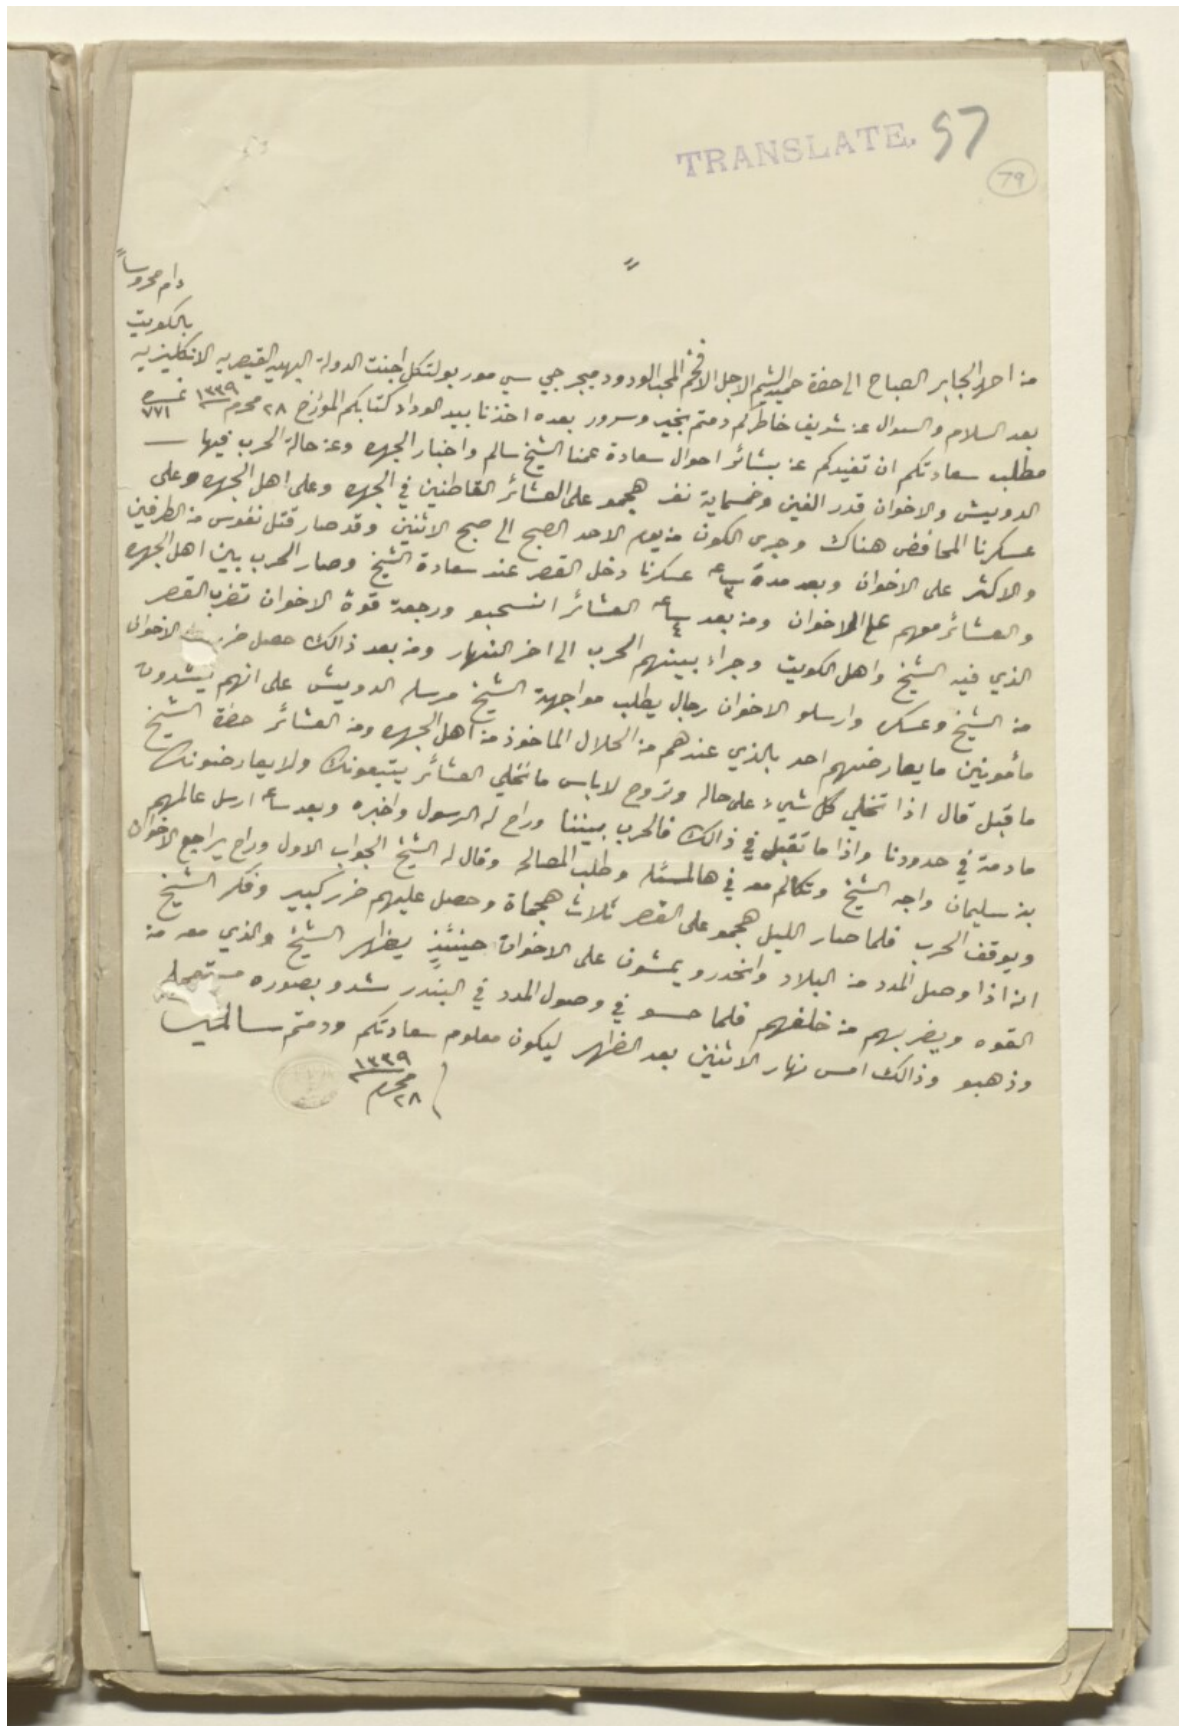 TRANSLATE. 57
79
"
دام محروساً
بالكويت
من احمد الجابر الصباح الى حضرة حميد الشيم الاجل الافخم المحب الودود ميجر جي سي مور بولتكل اجنت الدولة البهية القيصريه الانكليزيه
بعد السلام والسوال عن شريف خاطركم دمتم بخير وسرور بعده اخذنا بيد الوداد كتابكم المؤرخ ٢٨ محرم ١٣٣٩ نمره ٧٧١
مطلب سعادتكم ان تفيدكم عن بشائر احوال سعادة عمنا الشيخ سالم واخبار الجهره وعن حالة الحرب فيها
الدويش والاخوان قدر الفين وخمساية نفر هجمو على العشائر القاطنين في الجهره وعلى اهل الجهره وعلى
عسكرنا المحافض هناك وجرى الكون من يوم الاحد الصبح الى صبح الاثنين وقد صار قتل نفوس من الطرفين
والاكثر على الاخوان وبعد مدة ساعه ٣ عسكرنا دخل القصر عند سعادة الشيخ وصار الحرب بين اهل الجهره
والعشائر معهم على الاخوان ومن بعد ساعه ٤ العشائر انسحبو ورجعة قوة الاخوان تضرب القصر
الذي فيه الشيخ واهل الكويت وجراء بينهم الحرب الى اخر النهار ومن بعد ذالك حصل الاخوان
من الشيخ وعسكره وارسلو الاخوان رجال يطلب مواجهة الشيخ مرسله الدويش على انهم يشدون
مأمونين ما يعارضهم احد بالذي عندهم من الحلال الماخوذ من اهل الجهره ومن العشائر حضرة الشيخ
ما قبل قال اذا تخلي كل شيء على حاله وتروح لاباس ما نخلي العشائر يتبعونك ولا يعارضونك
مادمة في حدودنا واذا ما تقبل في ذالك فالحرب بيننا وراح له الرسول واخبره وبعد ساعه ارسل عالمهم
بن سليمان واجه الشيخ وتكالم معه في هالمسئله وطلب المصالحه وقال له الشيخ الجواب الاول وراح يراجع الاخوان
ويوقف الحرب فلما صار الليل هجمو على القصر ثلاث هجماة وحصل عليهم ضرر كبير وفكر الشيخ
انه اذا وصل المدد من البلاد وانحدرو يمشون على الاخوان حينئذٍ يظهر الشيخ والذي معه من
القوه ويضربهم من خلفهم فلما حسو في وصول المدد في البندر شدو بصوره مستعجله
وذهبو وذالك امس نهار الاثنين بعد الظهر ليكون معلوم سعادتكم ودمتم سالمين
٢٨ محرم ١٣٣٩